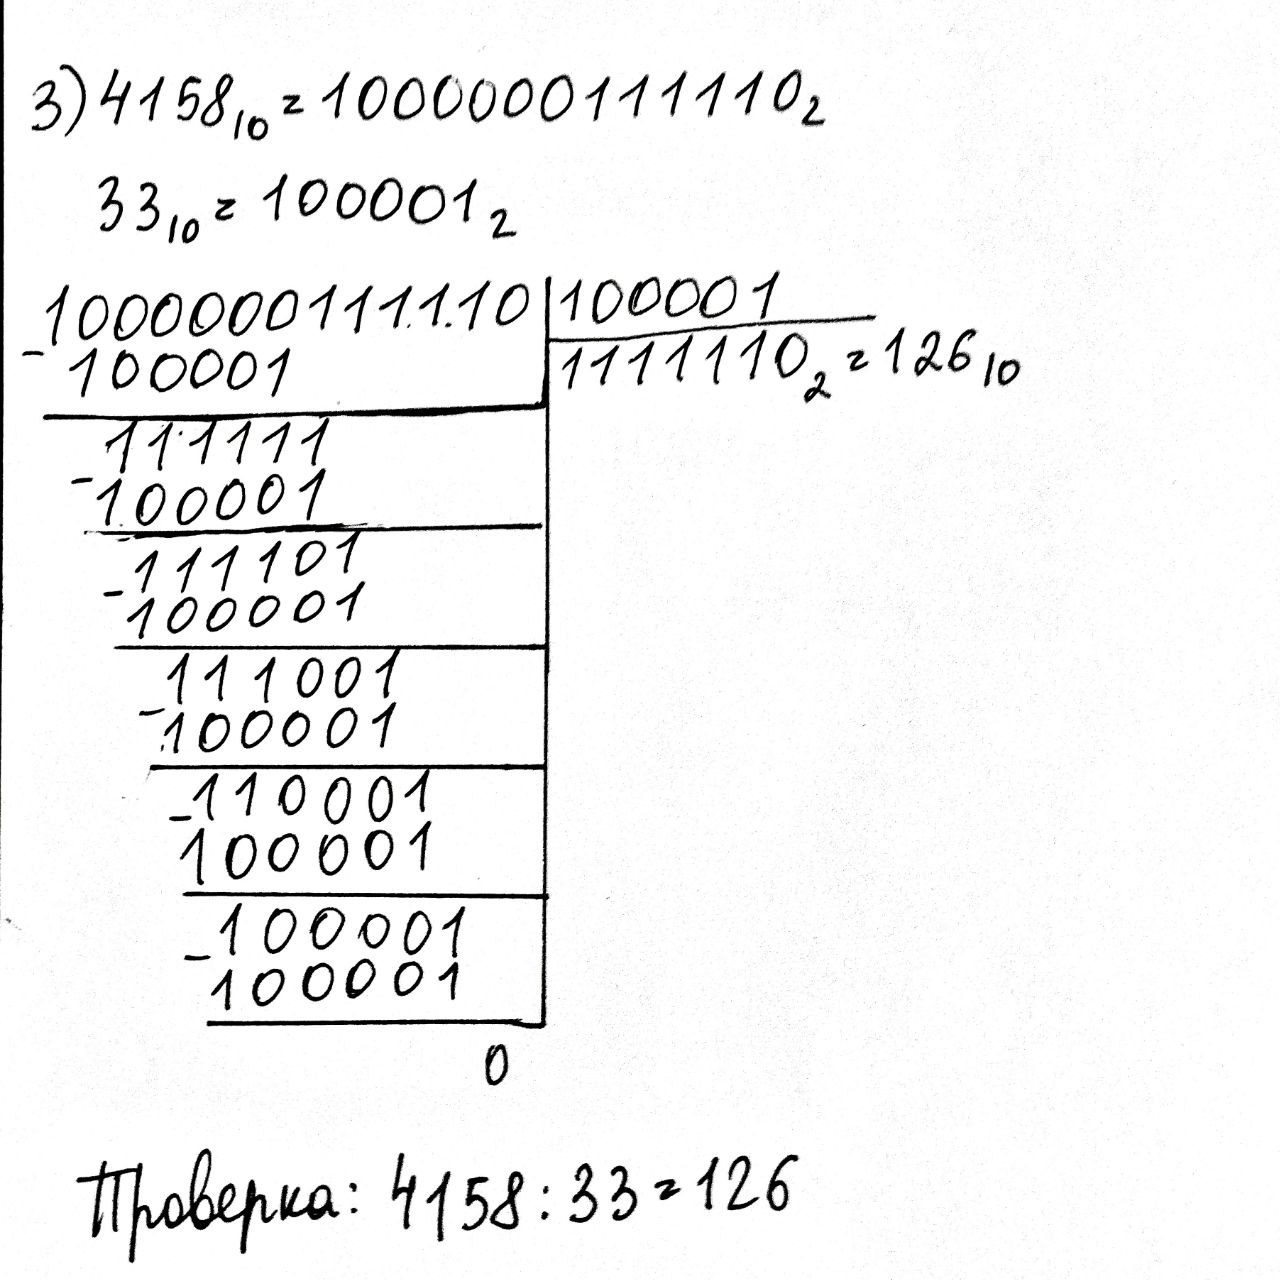 3) 4158₁₀ = 1000000111110₂
33₁₀ = 100001₂
1000000111110 | 100001
- 100001 | 1111110₂ = 126₁₀
111111
- 100001
111101
- 100001
111001
- 100001
110001
- 100001
100001
- 100001
0
Проверка: 4158 : 33 = 126